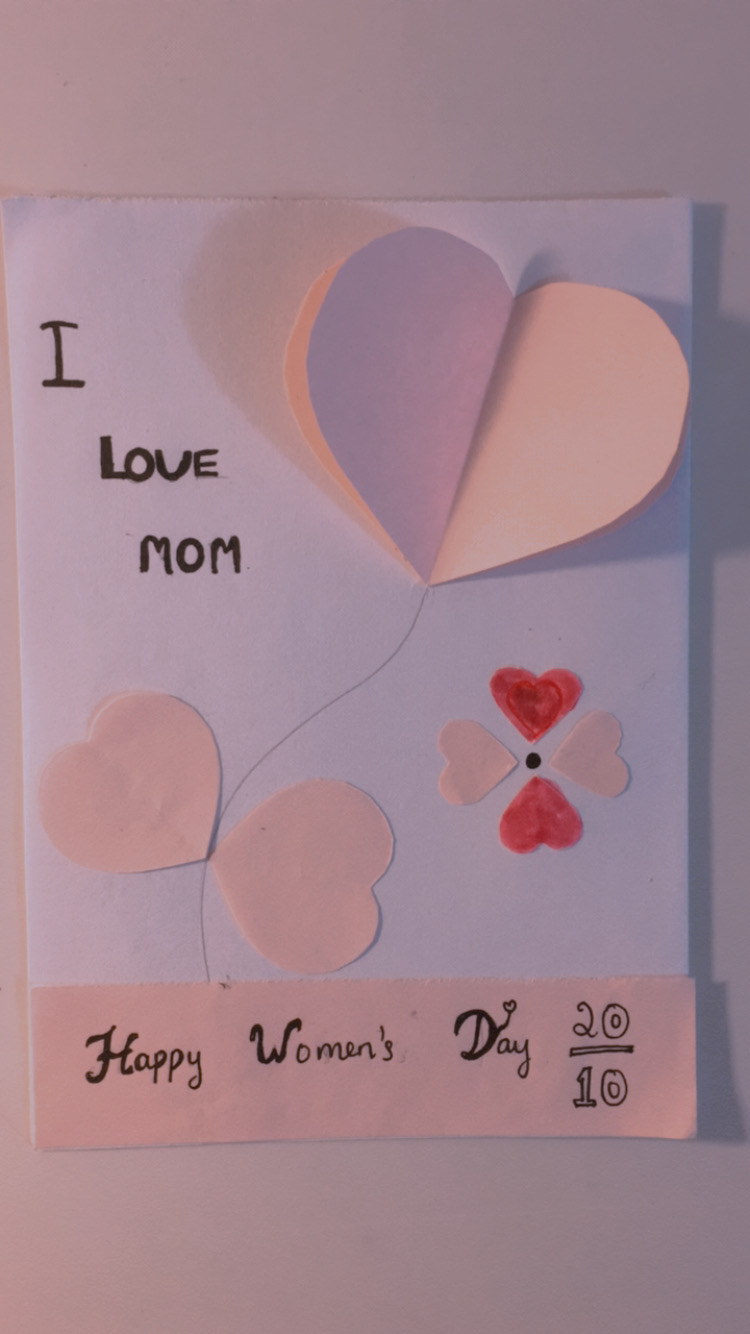 I
LOVE
MOM
Happy Women's Day 20
10